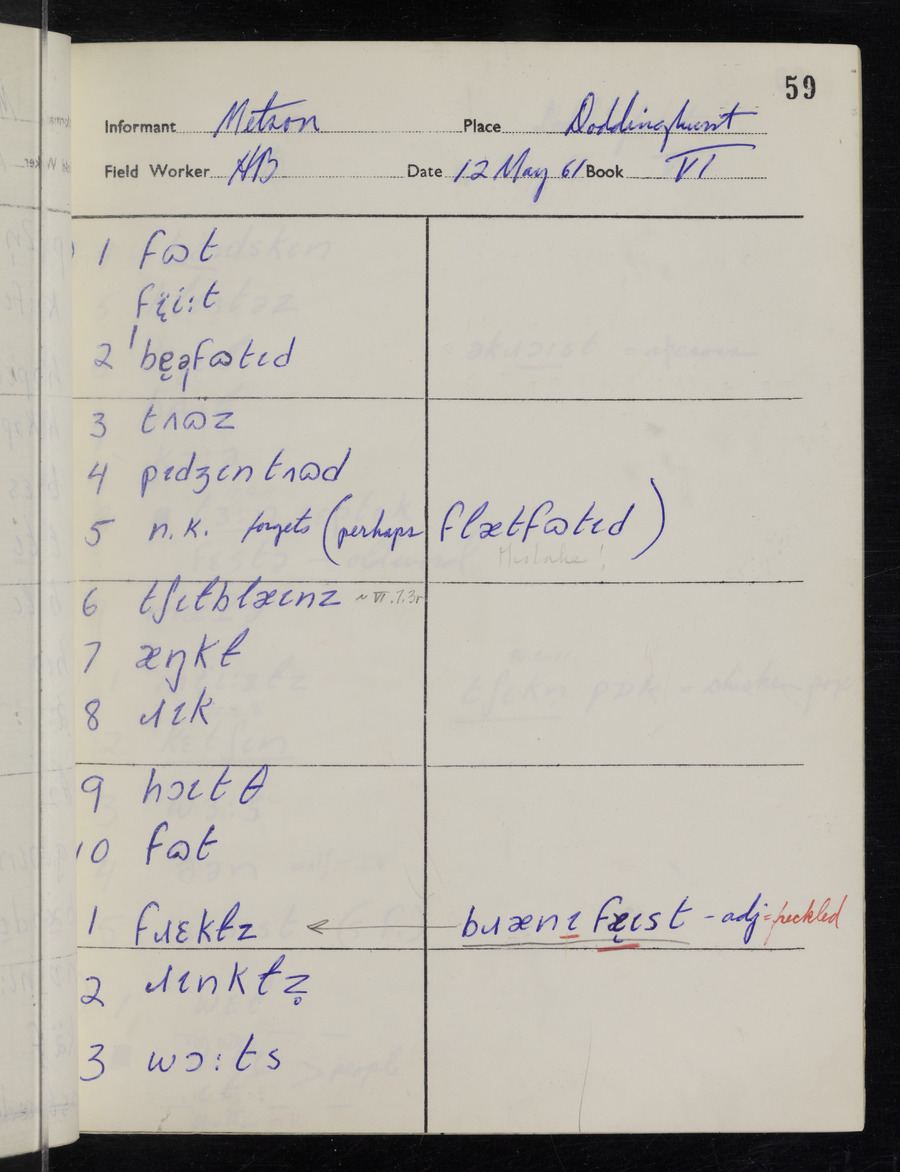 59
Informant Metson Place Doddinghurst
Field Worker HB Date 12 May 61 Book VI
1 fɷt
fę̈i:t
2 ˈbẹəfɷtɪd
3 tɹɷ̈z
4 pɪdʒɪn tɹɷd
5 n.k. forgets (perhaps flætfɷtɪd)
Mistake!
6 tʃɪɫblæɪnz ~ VI.7.3r
7 æŋkɫ
8 ɹɪk
9 hɔɪtθ
10 fɷt
1 fɹɛkɫz ← bɹænɪ fæɪst - adj = freckled
2 ɹɪnkɫz̥
3 wɔ:ts